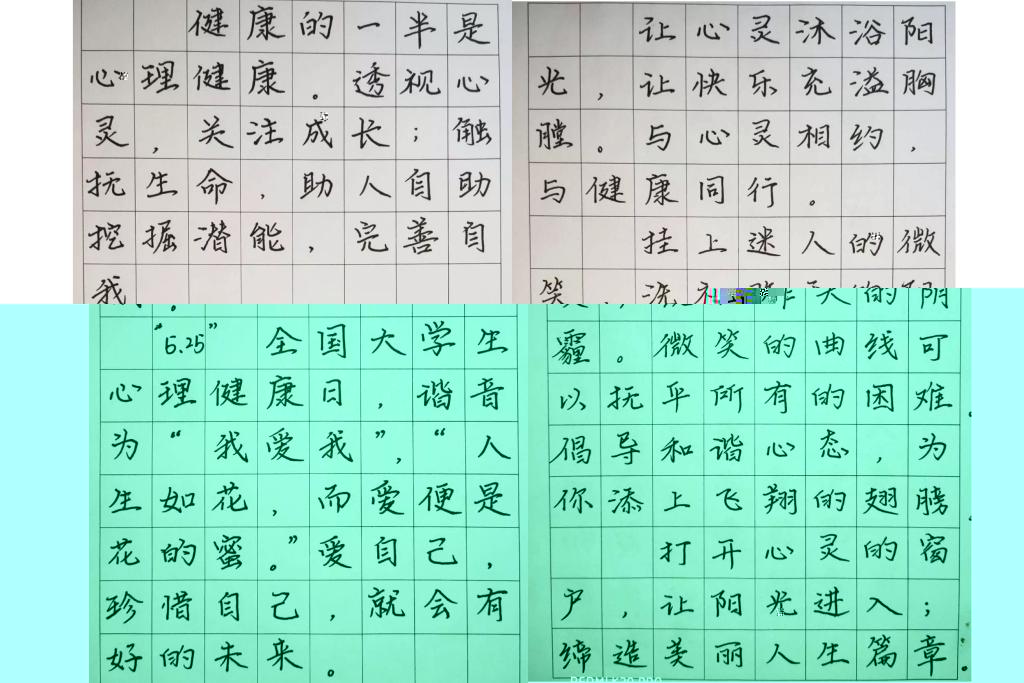 健康的一半是
心理健康。透视心
灵，关注成长；触
抚生命，助人自助
挖掘潜能，完善自
我。
"5.25"全国大学生
心理健康日，谐音
为"我爱我"，"人
生如花，而爱便是
花的蜜。"爱自己，
珍惜自己，就会有
好的未来。
让心灵沐浴阳
光，让快乐充溢胸
膛。与心灵相约，
与健康同行。
挂上迷人的微
笑，
天的阴
霾。微笑的曲线可
以抚平所有的困难。
倡导和谐心态，为
你添上飞翔的翅膀
打开心灵的窗
户，让阳光进入；
缔造美丽人生篇章。